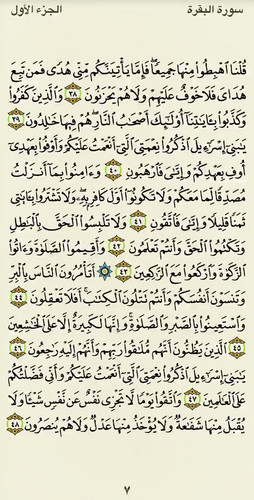 سورة البقرة الجزء الأول
قُلْنَا ٱهْبِطُوا۟ مِنْهَا جَمِيعًا ۖ فَإِمَّا يَأْتِيَنَّكُم مِّنِّى هُدًى فَمَن تَبِعَ
هُدَاىَ فَلَا خَوْفٌ عَلَيْهِمْ وَلَا هُمْ يَحْزَنُونَ ٣٨ وَٱلَّذِينَ كَفَرُوا۟
وَكَذَّبُوا۟ بِـَٔايَـٰتِنَآ أُو۟لَـٰٓئِكَ أَصْحَـٰبُ ٱلنَّارِ ۖ هُمْ فِيهَا خَـٰلِدُونَ ٣٩
يَـٰبَنِىٓ إِسْرَٰٓءِيلَ ٱذْكُرُوا۟ نِعْمَتِىَ ٱلَّتِىٓ أَنْعَمْتُ عَلَيْكُمْ وَأَوْفُوا۟ بِعَهْدِىٓ
أُوفِ بِعَهْدِكُمْ وَإِيَّـٰىَ فَٱرْهَبُونِ ٤٠ وَءَامِنُوا۟ بِمَآ أَنزَلْتُ
مُصَدِّقًا لِّمَا مَعَكُمْ وَلَا تَكُونُوٓا۟ أَوَّلَ كَافِرٍۭ بِهِۦ ۖ وَلَا تَشْتَرُوا۟ بِـَٔايَـٰتِى
ثَمَنًا قَلِيلًا وَإِيَّـٰىَ فَٱتَّقُونِ ٤١ وَلَا تَلْبِسُوا۟ ٱلْحَقَّ بِٱلْبَـٰطِلِ
وَتَكْتُمُوا۟ ٱلْحَقَّ وَأَنتُمْ تَعْلَمُونَ ٤٢ وَأَقِيمُوا۟ ٱلصَّلَوٰةَ وَءَاتُوا۟
ٱلزَّكَوٰةَ وَٱرْكَعُوا۟ مَعَ ٱلرَّٰكِعِينَ ٤٣ ۞ أَتَأْمُرُونَ ٱلنَّاسَ بِٱلْبِرِّ
وَتَنسَوْنَ أَنفُسَكُمْ وَأَنتُمْ تَتْلُونَ ٱلْكِتَـٰبَ ۚ أَفَلَا تَعْقِلُونَ ٤٤
وَٱسْتَعِينُوا۟ بِٱلصَّبْرِ وَٱلصَّلَوٰةِ ۚ وَإِنَّهَا لَكَبِيرَةٌ إِلَّا عَلَى ٱلْخَـٰشِعِينَ
٤٥ ٱلَّذِينَ يَظُنُّونَ أَنَّهُم مُّلَـٰقُوا۟ رَبِّهِمْ وَأَنَّهُمْ إِلَيْهِ رَٰجِعُونَ ٤٦
يَـٰبَنِىٓ إِسْرَٰٓءِيلَ ٱذْكُرُوا۟ نِعْمَتِىَ ٱلَّتِىٓ أَنْعَمْتُ عَلَيْكُمْ وَأَنِّى فَضَّلْتُكُمْ
عَلَى ٱلْعَـٰلَمِينَ ٤٧ وَٱتَّقُوا۟ يَوْمًا لَّا تَجْزِى نَفْسٌ عَن نَّفْسٍ شَيْـًٔا وَلَا
يُقْبَلُ مِنْهَا شَفَـٰعَةٌ وَلَا يُؤْخَذُ مِنْهَا عَدْلٌ وَلَا هُمْ يُنصَرُونَ ٤٨
٧